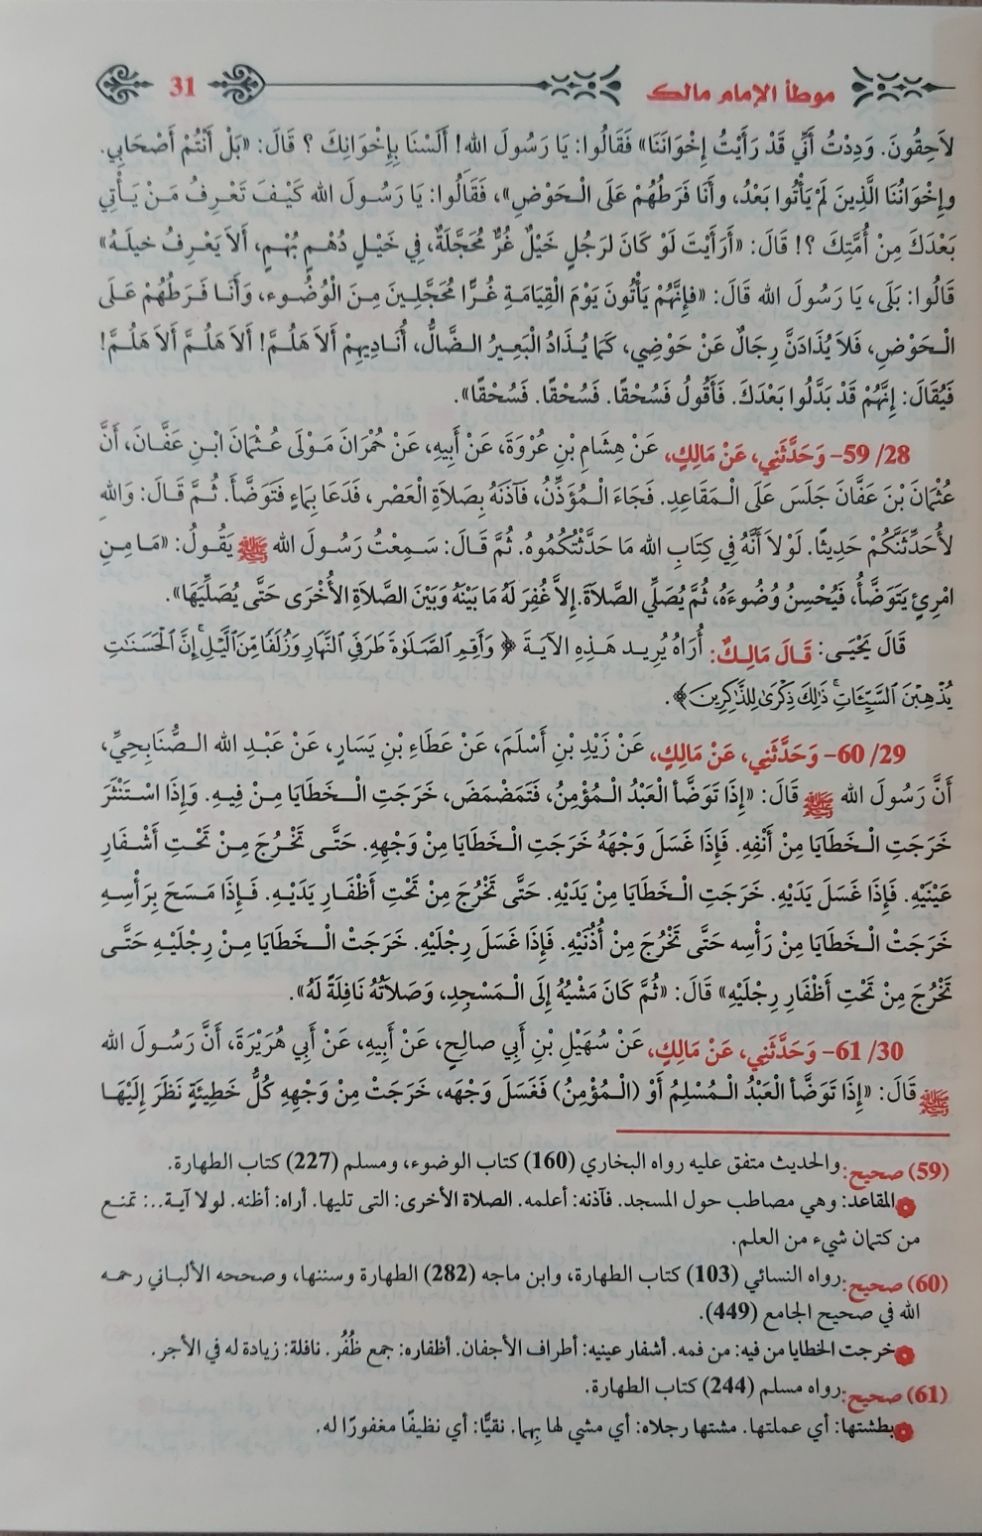 موطأ الإمام مالك 31
لاَحِقُونَ. وَدِدْتُ أَنِّي قَدْ رَأَيْتُ إِخْوَانَنَا» فَقَالُوا: يَا رَسُولَ الله! أَلَسْنَا بِإِخْوَانِكَ ؟ قَالَ: «بَلْ أَنْتُمْ أَصْحَابِي.
وإِخْوَانُنَا الَّذِينَ لَمْ يَأْتُوا بَعْدُ، وأَنَا فَرَطُهُمْ عَلَى الْحَوْضِ»، فَقَالُوا: يَا رَسُولَ الله كَيْفَ تَعْرِفُ مَنْ يَأْتِي
بَعْدَكَ مِنْ أُمَّتِكَ ؟! قَالَ: «أَرَأَيْتَ لَوْ كَانَ لرَجُلٍ خَيْلٌ غُرٌّ مُحَجَّلَةٌ، فِي خَيْلٍ دُهْمٍ بُهْمٍ، أَلاَ يَعْرِفُ خيلَهُ»
قَالُوا: بَلَى، يَا رَسُولَ الله قَالَ: «فَإِنَّهُمْ يَأْتُونَ يَوْمَ الْقِيَامَةِ غُرًّا مُحَجَّلِينَ مِنَ الْوُضُوء، وَأَنَا فَرَطُهُمْ عَلَى
الْحَوْضِ، فَلاَ يُذَادَنَّ رِجَالٌ عَنْ حَوْضِي، كَمَا يُذَادُ الْبَعِيرُ الضَّالُّ، أُنَادِيهِمْ أَلاَ هَلُمَّ! أَلاَ هَلُمَّ أَلاَ هَلُمَّ!
فَيُقَالَ: إِنَّهُمْ قَدْ بَدَّلُوا بَعْدَكَ. فَأَقُولُ فَسُحْقًا. فَسُحْقًا. فَسُحْقًا».
28/ 59- وَحَدَّثَنِي، عَنْ مَالِكٍ، عَنْ هِشَامِ بْنِ عُرْوَةَ، عَنْ أَبِيهِ، عَنْ حُمْرَانَ مَوْلَى عُثْمَانَ ابْنِ عَفَّانَ، أَنَّ
عُثْمَانَ بْنَ عَفَّانَ جَلَسَ عَلَى الْمَقَاعِدِ. فَجَاءَ الْمُؤَذِّنُ، فَآذَنَهُ بِصَلاَةِ الْعَصْرِ، فَدَعَا بِمَاءٍ فَتَوَضَّأَ. ثُمَّ قَالَ: وَاللهِ
لأُحَدِّثَنَّكُمْ حَدِيثًا. لَوْلاَ أَنَّهُ فِي كِتَابِ الله مَا حَدَّثْتُكُمُوهُ. ثُمَّ قَالَ: سَمِعْتُ رَسُولَ الله ﷺ يَقُولُ: «مَا مِنِ
امْرِئٍ يَتَوَضَّأُ، فَيُحْسِنُ وُضُوءَهُ، ثُمَّ يُصَلِّي الصَّلاَةَ.إِلاَّ غُفِرَ لَهُ مَا بَيْنَهُ وَبَيْنَ الصَّلاَةِ الأُخْرَى حَتَّى يُصَلِّيَهَا».
قَالَ يَحْيَى: قَالَ مَالِكٌ: أُرَاهُ يُرِيد هَذِهِ الآيَةَ ﴿ وَأَقِمِ ٱلصَّلَوٰةَ طَرَفَىِ ٱلنَّهَارِ وَزُلَفًا مِّنَ ٱلَّيْلِ ۚ إِنَّ ٱلْحَسَنَٰتِ
يُذْهِبْنَ ٱلسَّيِّـَٔاتِ ۚ ذَٰلِكَ ذِكْرَىٰ لِلذَّٰكِرِينَ﴾.
29/ 60- وَحَدَّثَنِي، عَنْ مَالِكٍ، عَنْ زَيْدِ بْنِ أَسْلَمَ، عَنْ عَطَاءِ بْنِ يَسَارٍ، عَنْ عَبْدِ الله الصُّنَابِحِيِّ،
أَنَّ رَسُولَ الله ﷺ قَالَ: «إِذَا تَوَضَّأَ الْعَبْدُ الْمُؤْمِنُ، فَتَمَضْمَضَ، خَرَجَتِ الْخَطَايَا مِنْ فِيهِ. وَإِذَا اسْتَنْثَرَ
خَرَجَتِ الْخَطَايَا مِنْ أَنْفِهِ. فَإِذَا غَسَلَ وَجْهَهُ خَرَجَتِ الْخَطَايَا مِنْ وَجْهِهِ. حَتَّى تَخْرُجَ مِنْ تَحْتِ أَشْفَارِ
عَيْنَيْهِ. فَإِذَا غَسَلَ يَدَيْهِ. خَرَجَتِ الْخَطَايَا مِنْ يَدَيْهِ. حَتَّى تَخْرُجَ مِنْ تَحْتِ أَظْفَارِ يَدَيْهِ. فَإِذَا مَسَحَ بِرَأْسِهِ
خَرَجَتْ الْخَطَايَا مِنْ رَأْسِه حَتَّى تَخْرُجَ مِنْ أُذُنَيْهِ. فَإِذَا غَسَلَ رِجْلَيْهِ. خَرَجَتْ الْخَطَايَا مِنْ رِجْلَيْهِ حَتَّى
تَخْرُجَ مِنْ تَحْتِ أَظْفَارِ رِجْلَيْهِ» قَالَ: «ثُمَّ كَانَ مَشْيُهُ إِلَى الْمَسْجِدِ، وَصَلاَتُهُ نَافِلَةً لَهُ».
30/ 61- وَحَدَّثَنِي، عَنْ مَالِكٍ، عَنْ سُهَيْلِ بْنِ أَبِي صالِحٍ، عَنْ أَبِيهِ، عَنْ أَبِي هُرَيْرَةَ، أَنَّ رَسُولَ الله
ﷺ قَالَ: «إِذَا تَوَضَّأَ الْعَبْدُ الْمُسْلِمُ أَوْ (الْمُؤْمِنُ) فَغَسَلَ وَجْهَه، خَرَجَتْ مِنْ وَجْهِهِ كُلُّ خَطِيئَةٍ نَظَرَ إِلَيْهَا
(59) صحيح:والحديث متفق عليه رواه البخاري (160) كتاب الوضوء، ومسلم (227) كتاب الطهارة.
المقاعد: وهي مصاطب حول المسجد. فآذنه: أعلمه. الصلاة الأخرى: التى تليها. أراه: أظنه. لولا آية..: تمنع
من كتمان شيء من العلم.
(60) صحيح:رواه النسائي (103) كتاب الطهارة، وابن ماجه (282) الطهارة وسننها، وصححه الألباني رحمه
الله في صحيح الجامع (449).
خرجت الخطايا من فيه: من فمه. أشفار عينيه: أطراف الأجفان. أظفاره: جمع ظُفُر. نافلة: زيادة له في الأجر.
(61) صحيح:رواه مسلم (244) كتاب الطهارة.
بطشتها: أي عملتها. مشتها رجلاه: أي مشي لها بِهما. نقيًّا: أي نظيفًا مغفورًا له.